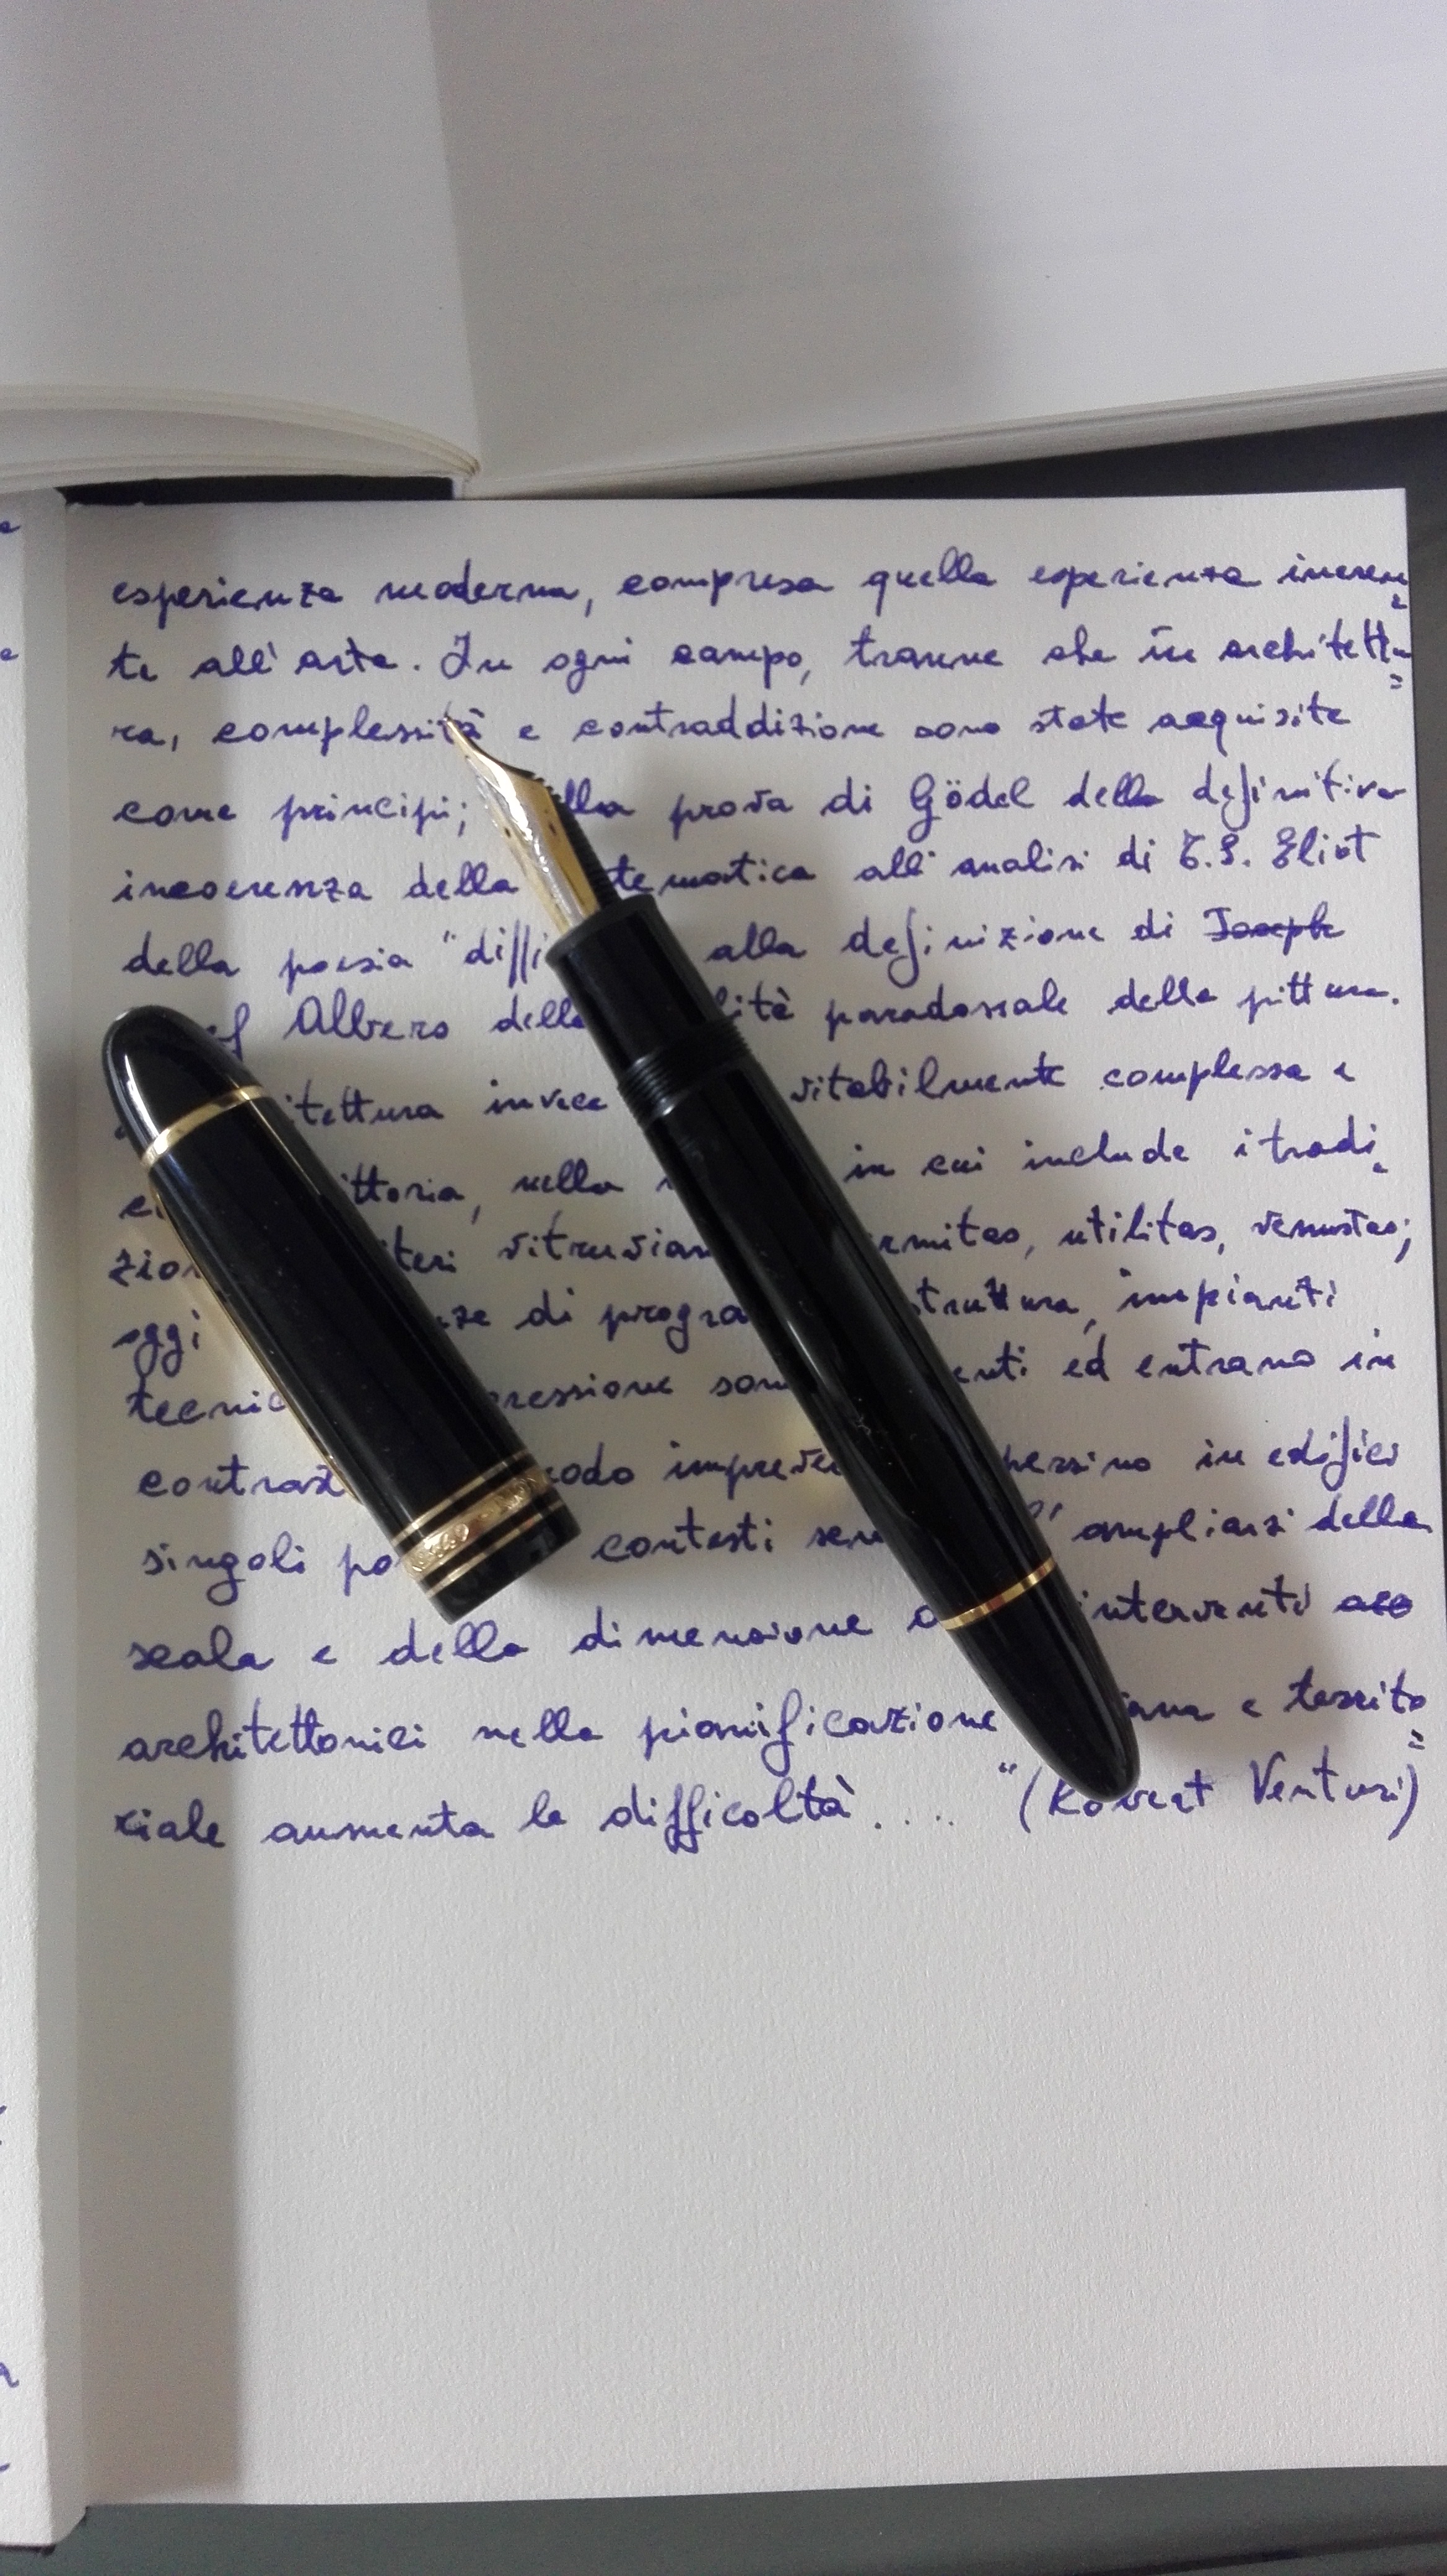 esperienza moderna, compresa quella esperienza ineren
te all'arte. In ogni campo, tranne che in architettu
ra, complessità e contraddizione sono state acquisite
come principi; lla prova di Gödel della definitiva
incoerenza della tematica all'analisi di T.S. Eliot
della poesia "diffi alla definizione di Joseph
ef Albers della lità paradossale della pittura.
itettura invece vitabilmente complessa e
ittoria, nella in cui include i tradi
zion iteri vitruvian rmitas, utilitas, venustas;
oggi ze di progra struttura, impianti
tecnic pressione son enti ed entrano in
contrast odo impreve persino in edifici
singoli po contesti sem l'ampliarsi della
scala e della dimensione interventi
architettonici nella pianificazione ana e territo
riale aumenta le difficoltà.... " (Robert Venturi)